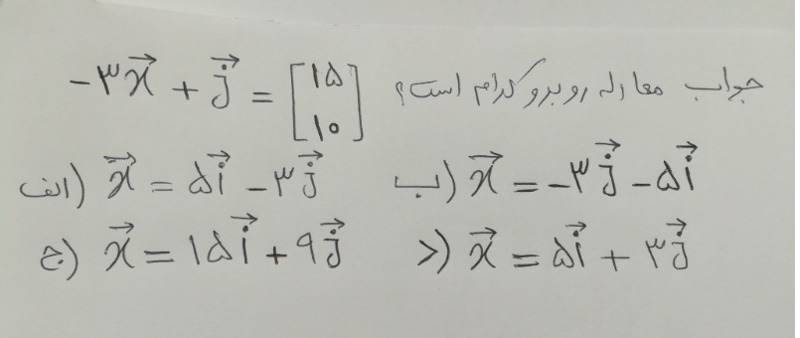 جواب معادله روبرو کدام است؟ -۳x⃗ + j⃗ = [۱۵ ۱۰]
الف) x⃗ = ۵i⃗ - ۳j⃗ ب) x⃗ = -۳j⃗ - ۵i⃗
ج) x⃗ = ۱۵i⃗ + ۹j⃗ د) x⃗ = ۵i⃗ + ۳j⃗